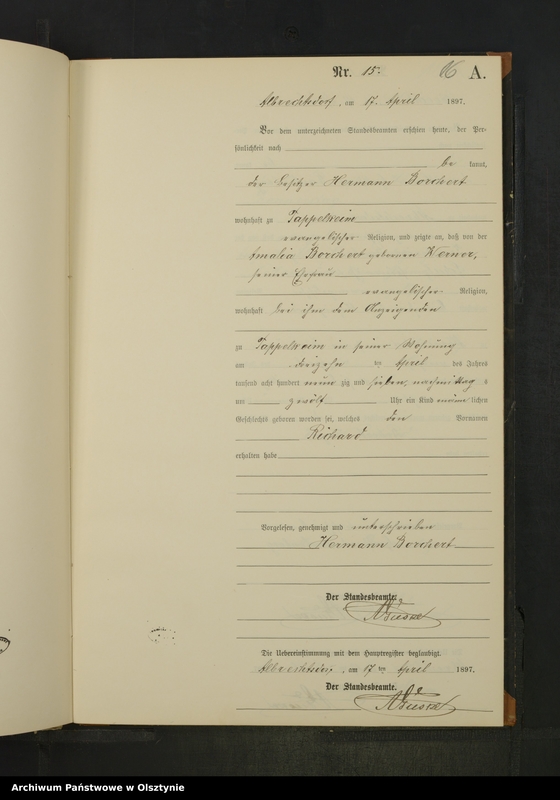 Nr. 15. A.
Albrechtsdorf, am 17. April 1897.
Vor dem unterzeichneten Standesbeamten erschien heute, der Per-
sönlichkeit nach
be kannt,
der Besitzer Hermann Borchert
wohnhaft zu Pappelheim
evangelischer Religion, und zeigte an, daß von der
Amalia Borchert geborenen Werner,
seiner Ehefrau
evangelischer Religion,
wohnhaft bei ihm dem Anzeigenden
zu Pappelheim in seiner Wohnung
am dreizehn ten April des Jahres
tausend acht hundert neun zig und sieben, nachmittag s
um zwölf Uhr ein Kind männ lichen
Geschlechts geboren worden sei, welches den Vornamen
Richard
erhalten habe
Vorgelesen, genehmigt und unterschrieben
Hermann Borchert
Der Standesbeamte.
Die Uebereinstimmung mit dem Hauptregister beglaubigt.
Albrechtsdorf, am 17 ten April 1897.
Der Standesbeamte.
Archiwum Państwowe w Olsztynie